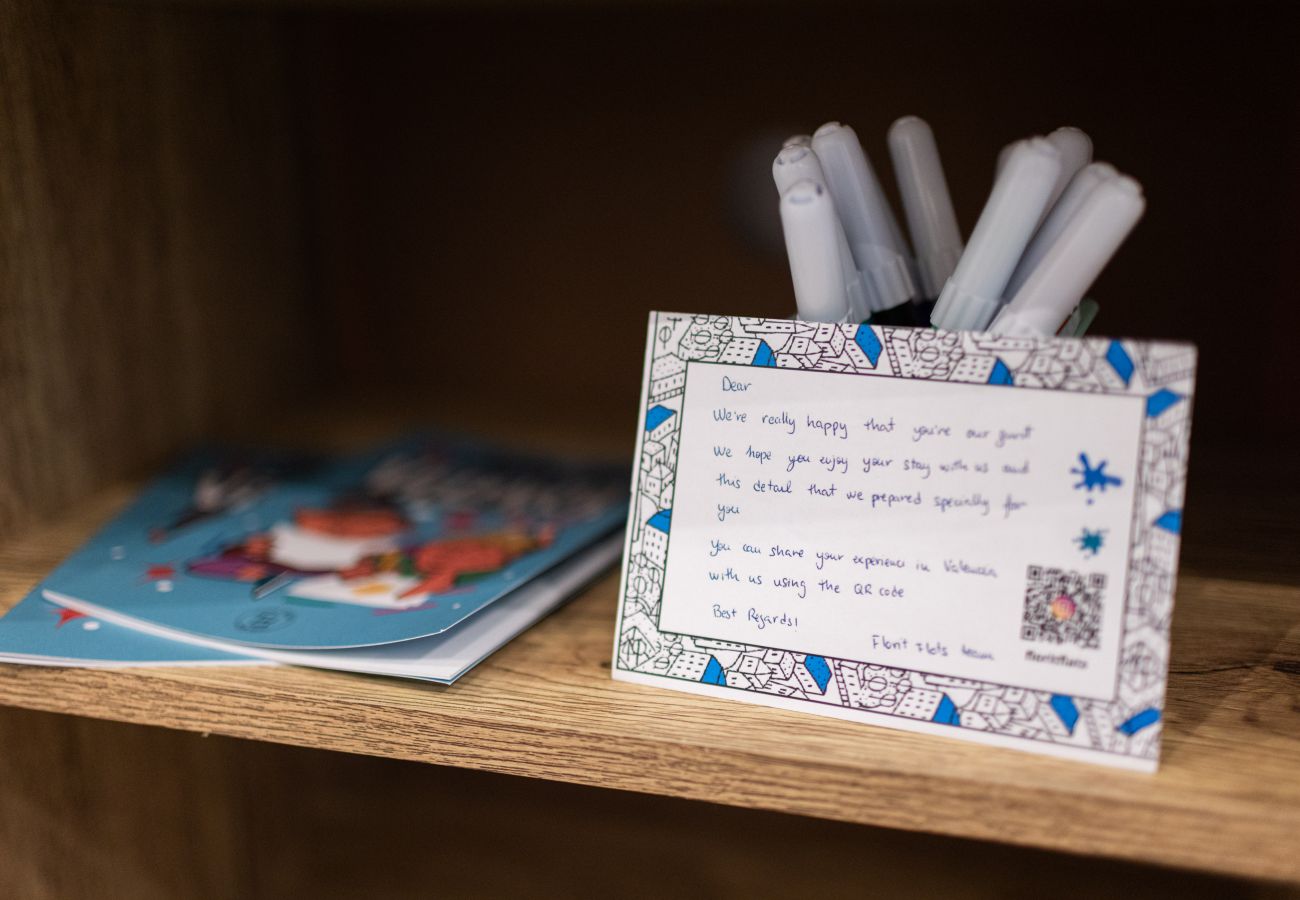 Dear
We're really happy that you're our guest
We hope you enjoy your stay with us and
this detail that we prepared specially for
you
You can share your experience in Valencia
with us using the QR code
Best Regards!
Florit Flats team